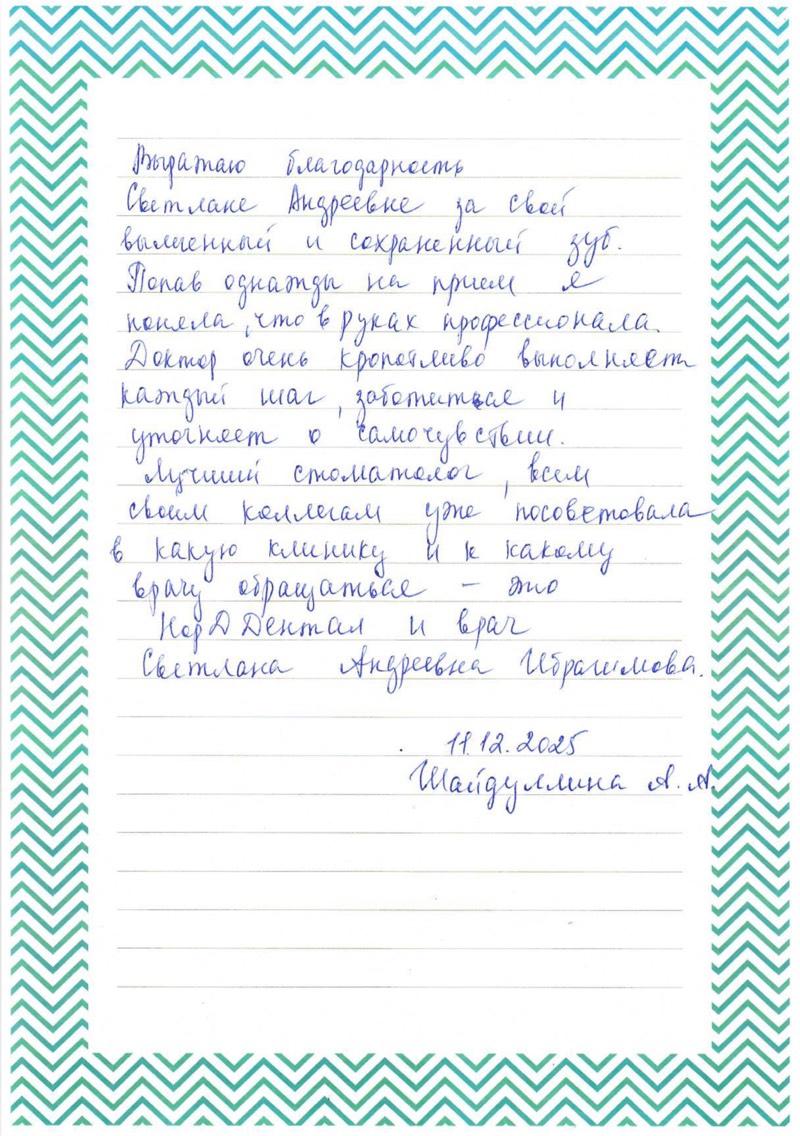 Выражаю благодарность
Светлане Андреевне за свой
вылеченный и сохраненный зуб.
Попав однажды на прием я
поняла, что в руках профессионала.
Доктор очень кропотливо выполняет
каждый шаг, заботиться и
уточняет о самочувствии.
Лучший стоматолог, всем
своим коллегам уже посоветовала
в какую клинику и к какому
врачу обращаться – это
НордДентал и врач
Светлана Андреевна Ибрагимова.
11.12.2025
Шайдуллина А. А.